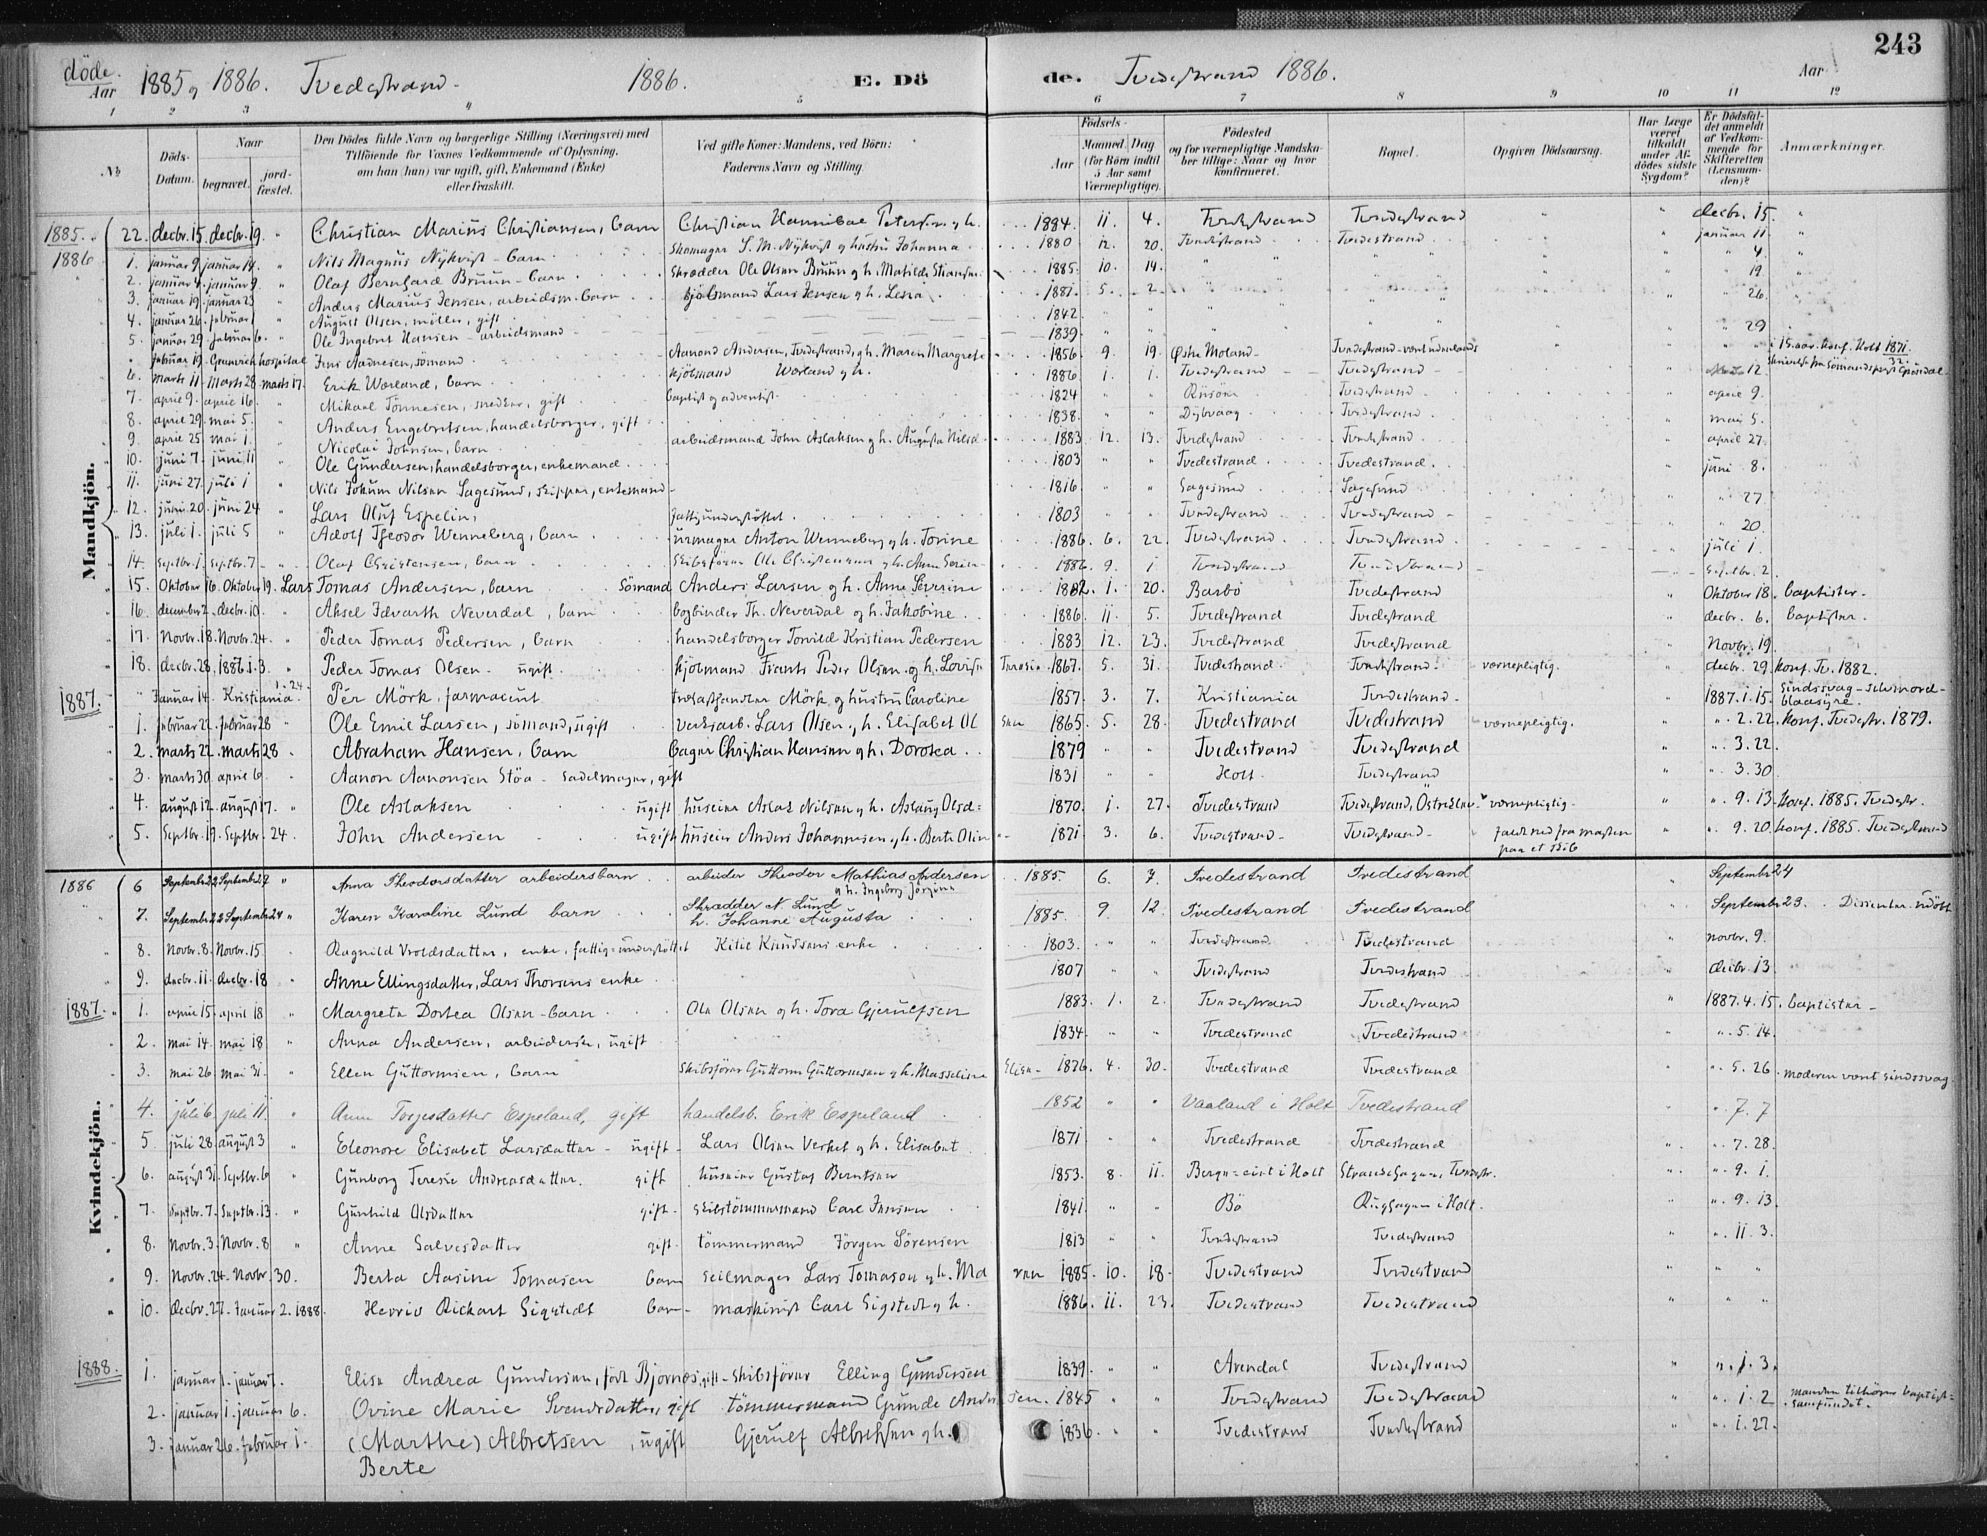 243
döde.
Aar 1885 og 1886. Tvedestrand. 1886. E. Döde. Tvedestrand 1886. Aar
1 2 3 4 5 6 7 8 9 10 11 12
№ Döds-Datum. Naar begravet. jordfæstet. Den Dödes fulde Navn og borgerlige Stilling (Næringsvei) med Tilföiende for Voxnes Vedkommende af Oplysning, om han (hun) var ugift, gift, Enkemand (Enke) eller fraskilt. Ved gifte Koner: Mandens, ved Börn: Faderens Navn og Stilling. Födsels- Aar Maaned. Dag (for Börn indtil 5 Aar samt Værnepligtige). Födested og for værnepligtige Mandskaber tillige: Naar og hvor konfirmeret. Bopæl. Opgiven Dödsaarsag. Har Læge været tilkaldt under Afdödes sidste Sygdom? Er Dödsfaldet anmeldt af Vedkommende for Skifteretten (Lensmanden)? Anmærkninger.
Mandkjön.
1885. 22. decbr. 15. decbr. 19. " Christian Marius Christiansen, barn Christian Hannibal Petersen og h. 1884. 11. 4. Tvedestrand Tvedestrand " " decbr. 15. "
1886 1. januar 9. januar 14. " Nils Magnus Nykvist - barn Skomager S. M. Nykvist og hustru Johanna 1880 12. 20. Tvedestrand Tvedestrand januar 11. "
2. januar 4. januar 9. " Olaf Bernhard Bruun - barn Skrædder Ole Olsen Bruun og h. Matilde 1885. 10. 14. " " " 4. "
3. januar 19. januar 23 " Anders Marius Jensen, arbeidsm. barn kjöbmand Lars Jensen og h. Lena 1881. 5. 2. " " 19. "
4. januar 26. februar 1 " August Olsen, möller, gift 1842 " " " 26. "
5. januar 29. februar 6. " Ole Ingebret Hansen - arbeidsmand 1839. " " " 29
" februar 19. hospital Jens Aadnesen, sömand Aanond Andersen, Tvedestrand, og h. Maren Margrete 1856. 9. 19. Østre Moland - Tvedestrand - " i 15. aar. konf. Holt 1871.
6. Marts 11. Marts 28. marts 17. Erik Worland, barn kjöbmand Worland og h. 1886 1. 1. Tvedestrand - Tvedestrand - 12.
7. april 9. april 16. " Mikael Tönnesen, snedker, gift baptist og adventist. 1824 " " Risöer Tvedestrand april 9.
8. april 29. mai 5. " Anders Engebretsen, handelsborger, gift 1838. " " Dybvaag Tvedestrand mai 5.
9. april 25. mai 1. " Nicolai Johnsen, barn arbeidsmand John Aslaksen og h. Augusta Nilsd. 1883. 12. 13. Tvedestrand Tvedestrand april 27.
10. juni 7. juni 11 " Ole Gundersen, handelsborger, enkemand 1803 " " Tvedestrand Tvedestrand juni 8.
11. juni 27. juli 1 " Nils Jokum Nilsen Sagesund, skipper, enkemand 1816 " " Sagesund Sagesund " 27.
12. juni 20. juni 24 " Lars Oluf Espelin, fattigunderstöttet 1803 " " Tvedestrand Tvedestrand " 20.
13. juli 1. juli 5 " Adolf Theodor Wenneberg, barn urmager Anton Wenneberg og h. Torine 1886. 6. 22. Tvedestrand Tvedestrand juli 1.
14. septbr. 1. septbr. 7. " Olaf Christensen, barn Skibsförer Ole Christensen og h. Anne 1886. 9. 1 Tvedestrand Tvedestrand Septbr. 2.
15. Oktober 16. Oktober 19. Lars Tomas Andersen, barn Sömand Anders Larsen og h. Anne Severine 1882. 1. 20. Barbö Tvedestrand Oktober 18. baptister.
16. december 2. decbr. 10. " Aksel Edvarth Neverdal, barn bogbinder Th. Neverdal og h. Jakobine 1886. 11. 5. Tvedestrand Tvedestrand decbr. 6. baptister.
17. Novbr. 18. Novbr. 24. " Peder Tomas Pedersen, barn handelsborger Torvild Kristian Pedersen 1883 12. 23. Tvedestrand Tvedestrand Novbr. 19.
18. decbr. 28. 1886. 1. 3. " Peder Tomas Olsen - ugift kjöbmand Frants Peder Olsen og h. Lovise 1867. 5. 31. Tvedestrand Tvedestrand værnepligtig. decbr. 29. konf. Tv. 1882.
1887. " Januar 14. Kristiania. 1.24. Pér Mörk, farmaceut Mörk og hustru Caroline 1857. 3. 7. Kristiania Tvedestrand " 1887. 1. 15. Sindssvag - selvmord - blaasyre.
1. februar 22. februar 28 " Ole Emil Larsen, sömand, ugift verksarb. Lars Olsen og h. Elisabet Olsen 1865. 5. 28. Tvedestrand Tvedestrand værnepligtig. " ". 2. 22. konf. Tvedestr. 1879.
2. marts 22. marts 28 " Abraham Hansen, barn bager Christian Hansen og h. Dorotea 1879 " " Tvedestrand Tvedestrand " ". 3. 22.
3. marts 30. april 6. " Aanon Aanonsen Stöa - sadelmager, gift 1831 " " Holt Tvedestrand " ". 3. 30.
4. august 12. august 17. " Ole Aslaksen ugift huseier Aslak Nilsen og h. Aslaug Olsd. 1870. 1. 27. Tvedestrand Tvedestrand, værnepligtig. " ". 9. 13. konf. 1885. Tvedestr.
5. Septbr. 19. Septbr. 24. John Andersen ugift huseier Anders Johannesen og h. Berte 1871 3. 6. Tvedestrand - Tvedestrand - faldt ned fra masten paa et skib " ". 9. 20. konf. 1885. Tvedestrand
Kvindekjön.
1886 6 September 22 September 27 " Anna Theodorsdatter arbeidersbarn arbeider Theodor Mathias Andersen og h. Ingeborg Jörgine 1885. 6. 7. Tvedestrand Tvedestrand September 24
7. September 22 September 24 " Karen Karoline Lund barn Skrædder N. Lund h. Johanne Augusta 1885. 9. 12. Tvedestrand Tvedestrand " September 23. Dissenter. udöbt
8. Novbr. 8. Novbr. 15 Ragnild Vroldsdatter, enke, fattig-understöttet Kitil Knudsens enke 1803. " " Tvedestrand Tvedestrand " novbr. 9.
9. decbr. 11. decbr. 18 " Anne Ellingsdatter, Lars Thorsens enke 1807 " " Tvedestrand Tvedestrand " decbr. 13.
1887. 1. april 15. april 18 " Margrete Dortea Olsen - barn Ole Olsen og h. Tora Gjerulfsen 1883. 1. 2. Tvedestrand Tvedestrand " 1887. 4. 15. baptister -
2. mai 14. mai 18 " Anna Andersen, arbeiderske, ugift 1834. " " Tvedestrand Tvedestrand ". 5. 14.
3. mai 26. mai 31. " Ellen Guttormsen, barn Skibsförer Guttorm Guttormsen og h. Masseline Elisa- 1876. 4. 30. Tvedestrand Tvedestrand " ". 5. 26. moderen været sindssvag
4. juli 6. juli 11. " Anne Torjesdatter Espeland, gift handelsb. Eirik Espeland 1852 " " Vaaland i Holt Tvedestrand " ". 7. 7
5. juli 28. august 3 " Eleonore Elisabet Larsdatter - ugift - Lars Olsen Verket og h. Elisabet 1871 " " Tvedestrand Tvedestrand " ". 7. 28.
6. august 31. Septbr. 6 " Gunborg Terese Andreasdatter. gift huseier Gustav Berntsen 1853. 8. 11. i Holt Tvedestr. " ". 9. 1.
7. Septbr. 7. Septbr. 13. " Gunhild Olsdatter gift - skibstömmermand Carl Jensen 1841. " " Bö i Holt. " ". 9. 13.
8. Novbr. 3. Novbr. 8 " Anne Salvesdatter gift - tömmermand Jörgen Sörensen 1813 " " Tvedestrand Tvedestrand " ". 11. 3.
9. Novbr. 24. Novbr. 30. Berta Aasine Tomasen barn seilmager Lars Tomasen og h. Maren 1885. 10. 18. Tvedestrand Tvedestrand " " "
10. decbr. 27. Januar 2. 1888. Henrik Rickart Sigstedt barn - maskinist Carl Sigstedt og h. 1886. 11. 23. Tvedestrand Tvedestrand " " "
1888. 1. januar 1. januar 7. Elise Andrea Gundersen, född Bjornes, gift - Skibsförer Elling Gundersen 1839. " " Arendal Tvedestrand " ". 1. 3.
2. januar 1. januar 6. Ovine Marie Svendsdatter, gift tömmermand Grunde Andersen. 1845 " " Tvedestrand Tvedestrand " ". 1. 2 manden tilhörer baptist-samfundet.
3. Januar 26. februar 1. (Marthe) Albretsen, ugift Gjerulf Albretsen og h. 1836. " " Tvedestrand Tvedestrand " ". 1. 27.
Berte